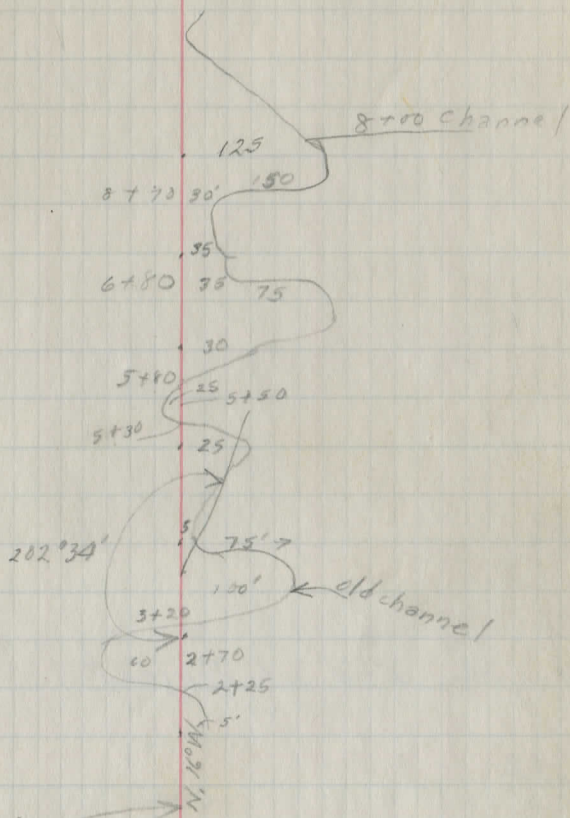 8+00 channel
125
150
8+70 30'
35
6+80 35
75
30
5+80
25
5+50
5+30
25
5
202°34'
75'
100'
old channel
3+20
60 2+70
2+25
5'